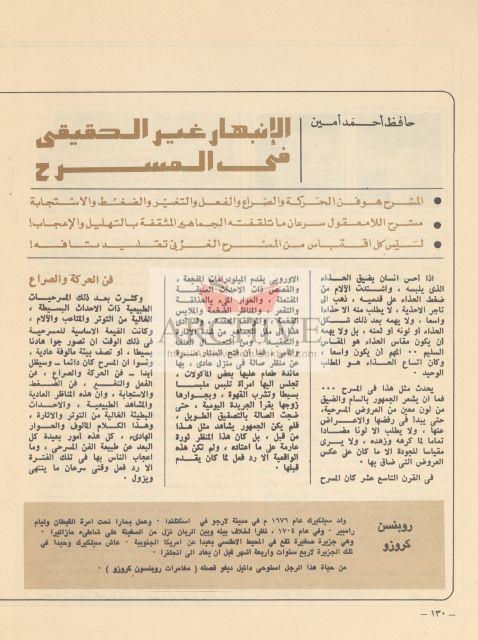 حافظ أحمد أمين
الإنبهار غير الحقيقى
فى المسرح
المسرح هو فن الحركة والصراع والفعل والتغير والضغط والاستجابة
مسرح اللامعقول سرعان ما تلقفته الجماهير المثقفة بالتهليل والإعجاب!
ليس كل اقتباس من المسرح الغربى تقليد تافه!
اذا احس انسان بضيق الحذاء
الذى يلبسه ، واشتدت الآلام من
ضغط الحذاء على قدميه ، ذهب الى
تاجر الاحذية ، لا يطلب منه الا حذاءا
واسعا ، ولا يهمه بعد ذلك شكل
الحذاء او لونه او ثمنه ، بل ولا يهمه
ان يكون مقاس الحذاء هو المقاس
السليم .. المهم ان يكون واسعا ،
وكان اتساع الحذاء هو المطلب
الوحيد .
يحدث مثل هذا فى المسرح ...
فما ان يشعر الجمهور بالسأم والضيق
من لون معين من العروض المسرحية،
حتى يبدأ فى رفضها والاعراض
عنها ، ولا يطلب الا لونا مضادا
تماما لما كرهه وزهده ، ولا يرى
مقياسا للجودة الا ما كان على عكس
العروض التى ضاق بها .
فى القرن التاسع عشر كان المسرح
الاوروبى يقدم الميلودرامات المفجعة ،
والقصص ذات الاحداث العنيفة
المفتعلة ، والحوار الملىء بالحذلقة
والتقعر ، والمناظر الضخمة والملابس
الفخمة
عن منظر صالة فى منزل عادى ، بها
مائدة طعام عليها بعض المأكولات ،
تجلس اليها امرأة تلبس ملبسا
بسيطا وتشرب القهوة ، وبجوارها
زوجها يقرأ الجريدة اليومية ، حتى
ضجت الصالة بالتصفيق الطويل .
فلم يكن الجمهور يشاهد مثل هذا
من قبل ، بل كان هذا المنظر ثورة
عارمة على ما اعتاده ، ولم تكن هذه
الواقعية الا رد فعل لما كان يقدم
قبلها .
فن الحركة والصراع
وكثرت بعد ذلك المسرحيات
الطبيعية ذات الاحداث البسيطة ،
الخالية من التوتر والمتاعب والآلام ،
وكانت القيمة الاساسية للمسرحية
فى ذلك الوقت ان تصور جوا هادئا
بسيطا ، أو تصف بيئة مألوفة عادية ،
ونسوا ان المسرح كان دائما - وسيظل
ابدا - فن الحركة والصراع ، فن
الفعل والتغير ، فن الضغط
والاستجابة ، وان هذه المناظر العادية
والمشاهد الطبيعية ، والاحداث
البطيئة الخالية من التوتر والاثارة ،
وهذا الكلام المألوف والحوار
الهادىء ، كل هذه أمور بعيدة كل
البعد عن طبيعة الفن المسرحى ، وما
اعجاب الناس بها فى تلك الفترة
الا رد فعل وقتى سرعان ما ينتهى
ويزول .
ARCHIVE
روبنسن
كروزو
ولد سيلكيرك عام ١٦٧٦ م فى مدينة لارجو فى اسكتلندا . وعمل بحارا تحت امرة القبطان وليام
دامبير . وفى عام ١٧٠٤ ، نظرا لخلاف بينه وبين الربان نزل من السفينة على شاطىء
وهى جزيرة صغيرة تقع فى المحيط الاطلسى بعيدا عن امريكا الجنوبية . عاش سيلكيرك وحيدا فى
تلك الجزيرة لاربع سنوات واربعة اشهر قبل ان يعاد الى انجلترا .
من حياة هذا الرجل استوحى دانيل ديفو قصته ( مغامرات روبنسون كروزو ) .
– ١٣٠ –